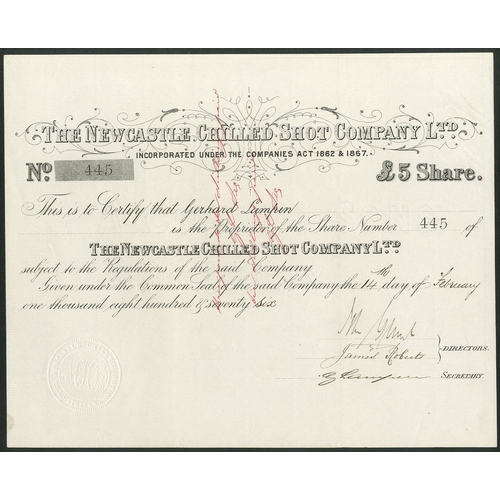 THE NEWCASTLE CHILLED SHOT COMPANY LTD.
INCORPORATED UNDER THE COMPANIES ACT 1862 & 1867.
No 445 £5 Share.
This is to Certify that Gerhard Lampen
is the Proprietor of the Share Number 445 of
THE NEWCASTLE CHILLED SHOT COMPANY LTD
subject to the Regulations of the said Company
Given under the Common Seal of the said Company the 14th day of February
one thousand eight hundred & seventy six
James Roberts
DIRECTORS.
G Lampen
SECRETARY.